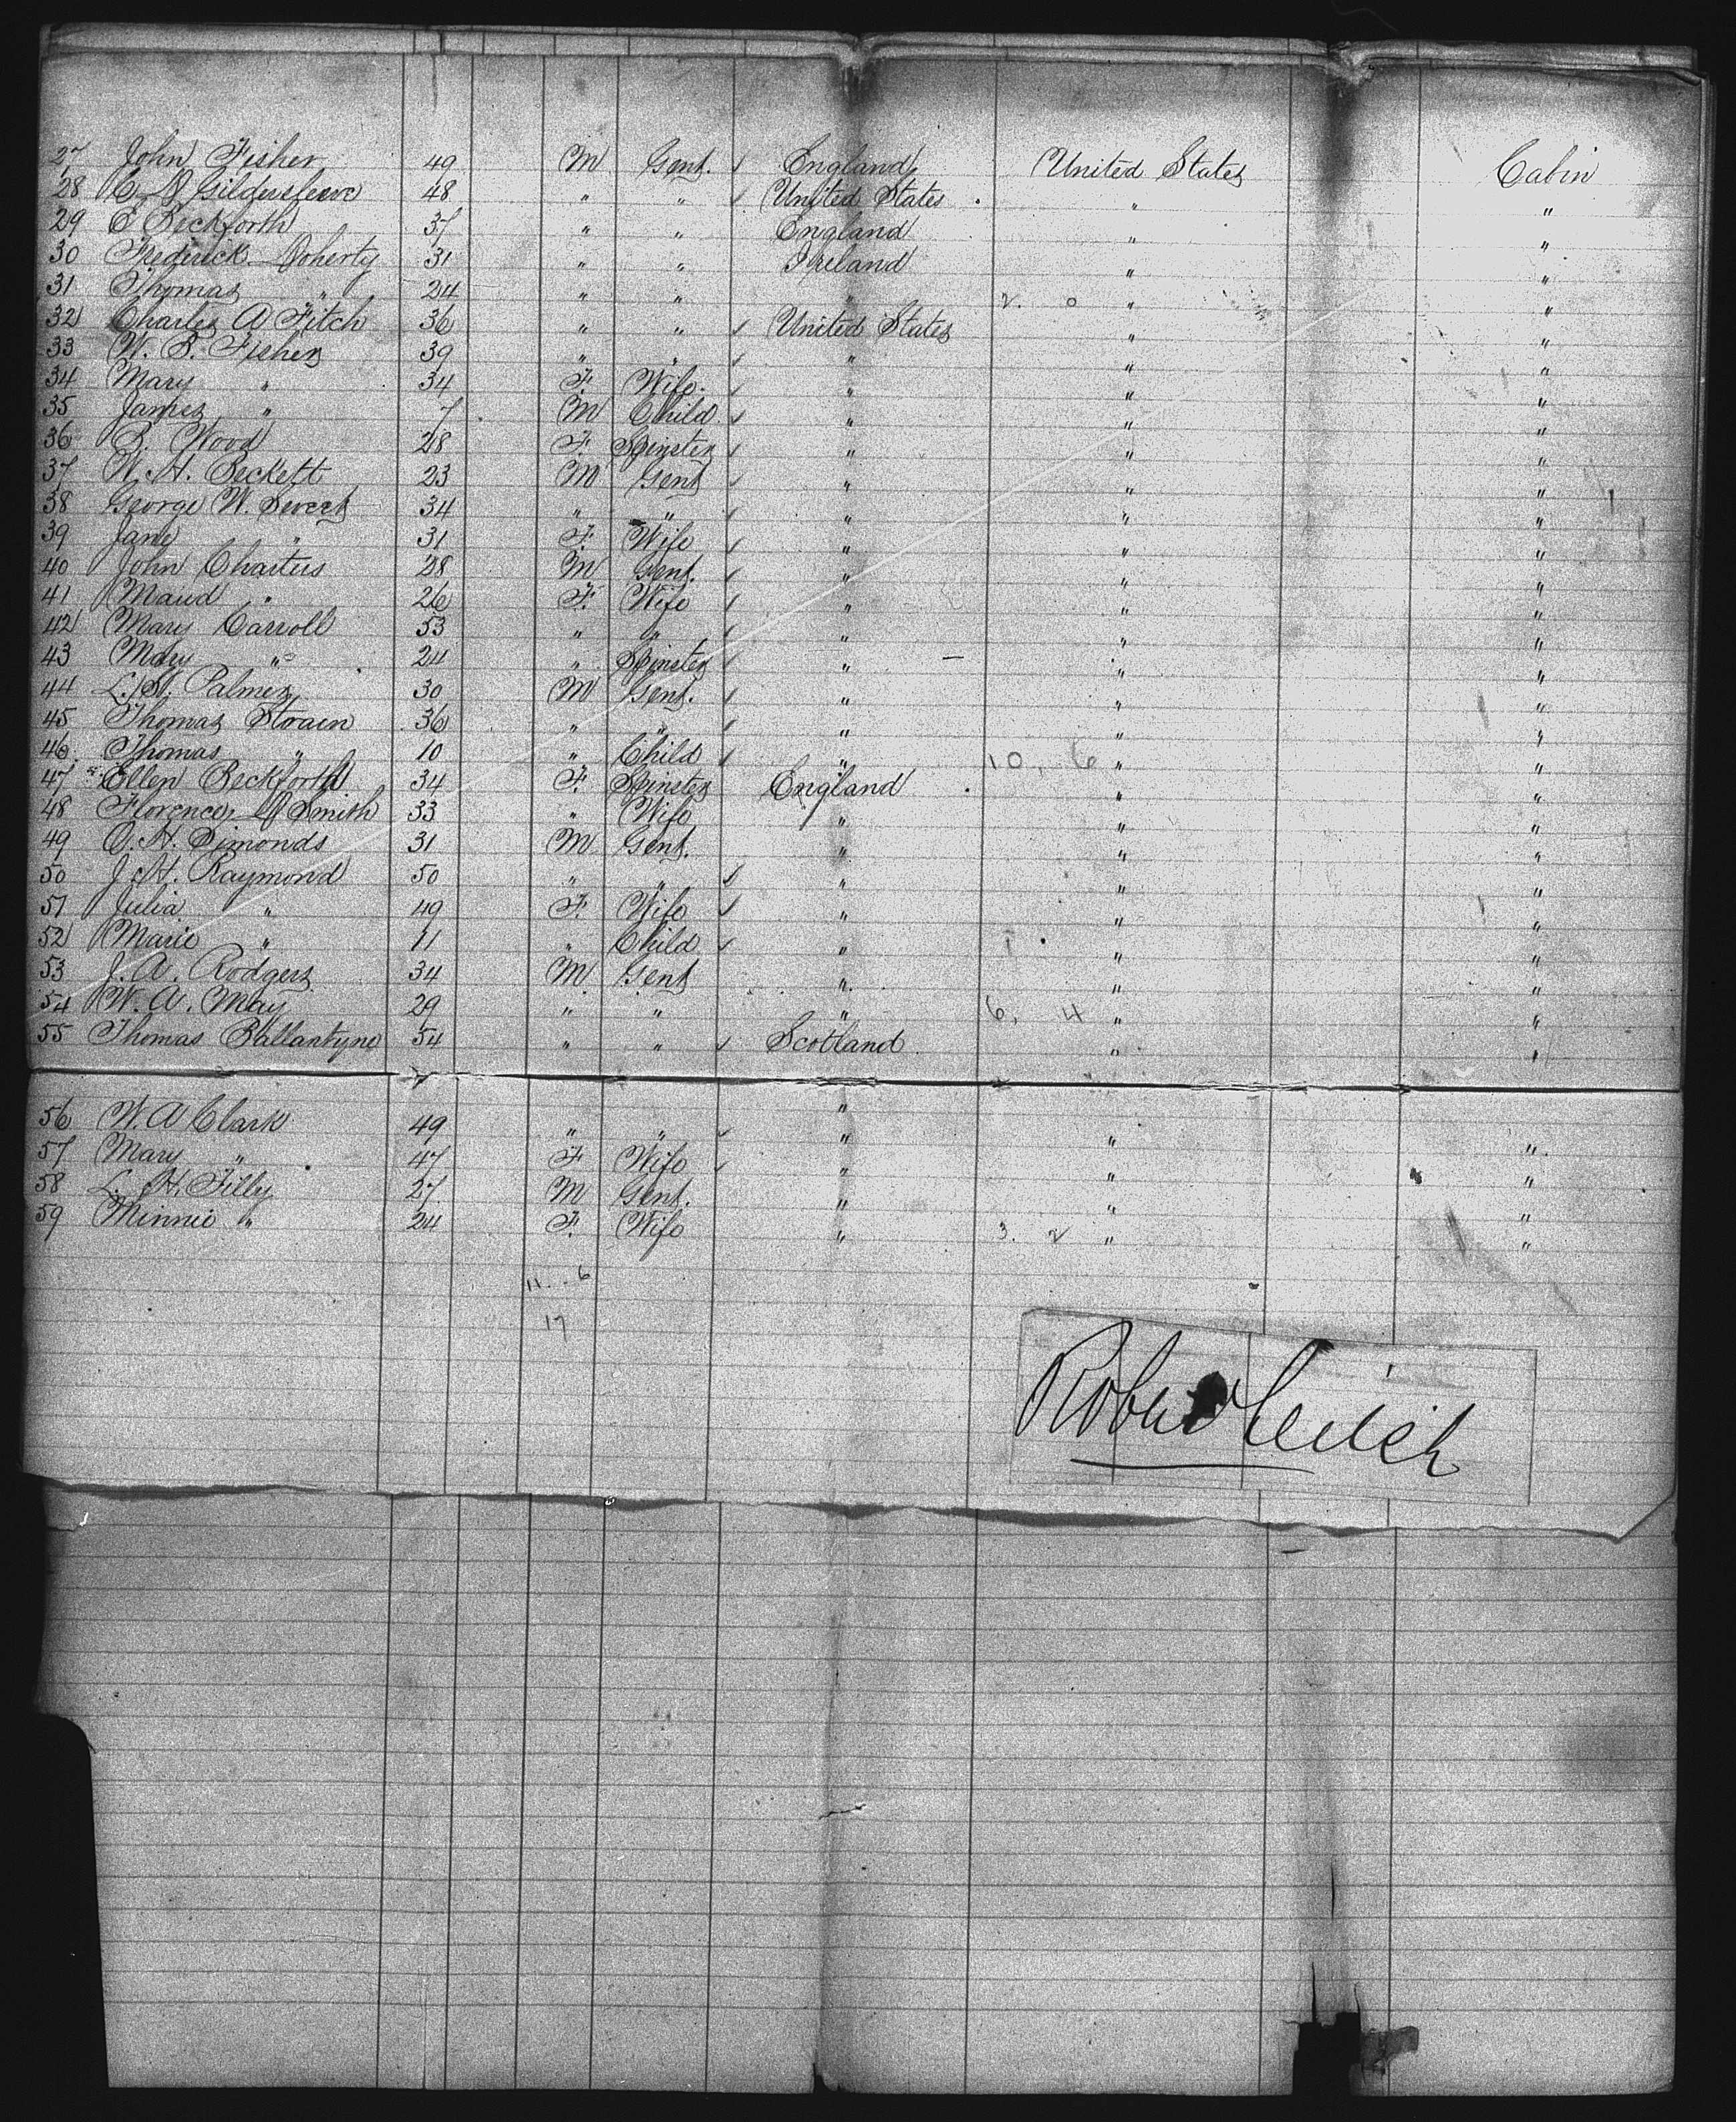 27 John Fisher 49 M Gent. ✓ England United States Cabin
28 C. D Gildersleeve 48 " " ✓ United States " "
29 E Beckforth 37 " " England " "
30 Frederick Doherty 31 " " Ireland " "
31 Thomas " 24 " " " 2. 0 " "
32 Charles A Fitch 36 " " ✓ United States " "
33 W. B. Fisher 39 " " ✓ " " "
34 Mary " 34 F. Wife. ✓ " " "
35 James " 7 M Child. ✓ " " "
36 B. Wood 28 F. Spinster ✓ " " "
37 W. H. Beckett 23 M Gent ✓ " " "
38 George W. 34 " " ✓ " " "
39 Jane " 31 F. Wife ✓ " " "
40 John Charters 28 M Gent. ✓ " " "
41 Maud " 26 F. Wife ✓ " " "
42 Mary Carroll 53 " " ✓ " " "
43 Mary " 24 " Spinster ✓ " " "
44 L. H. Palmer 30 M Gent. ✓ " " "
45 Thomas Strain 36 " " ✓ " " "
46 Thomas " 10 " Child ✓ " 10. 6 " "
47 Ellen Beckforth 34 F. Spinster England " "
48 Florence D Smith 33 " Wife " " "
49 O. H. Simonds 31 M Gent. " " "
50 J. H. Raymond 50 " " ✓ " " "
51 Julia " 49 F. Wife ✓ " " "
52 Marie " 11 " Child ✓ " 1 " "
53 J. A. Rodgers 34 M Gent " " "
54 W. A. May 29 " " " 6. 4 " "
55 Thomas Ballantyne 54 " " ✓ Scotland " "
"
56 W. A Clark 49 " " ✓ " " "
57 Mary " 47 F Wife ✓ " " "
58 L. H. Filly 27 M Gent. " " "
59 Minnie " 24 F. Wife " 3. 2 " "
11. 6
17